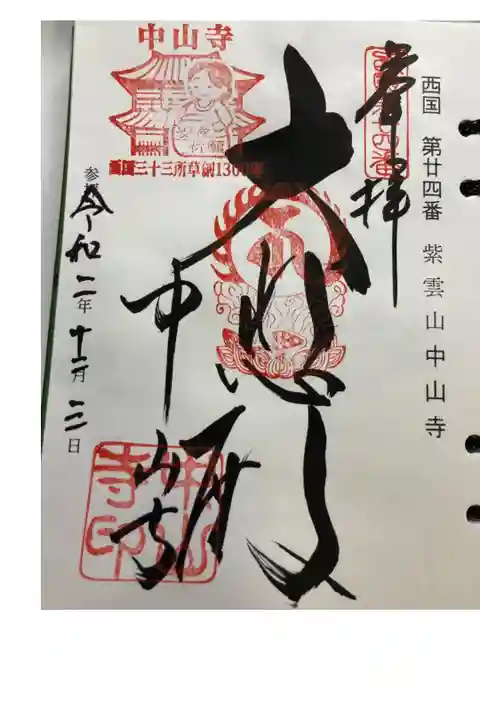 西国 第廿四番 紫雲山中山寺
奉拝
大悲殿
中山寺
中山寺
安産
祈願
西国三十三所草創1300年
中山
寺印
令和二年十二月 日